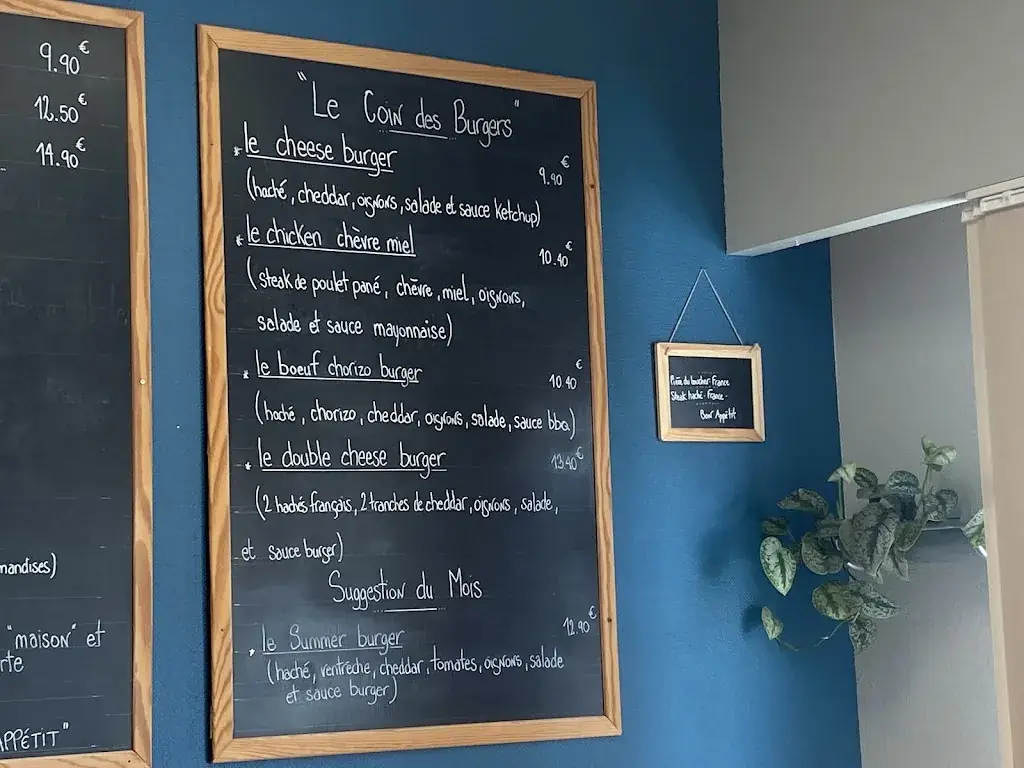 9.90€
12.50€
14.90€
mandises)
"maison" et
rte
APPÉTIT"
"Le Coin des Burgers"
* le cheese burger 9.90€
(haché, cheddar, oignons, salade et sauce ketchup)
* le chicken chèvre miel 10.40€
(steak de poulet pané, chèvre, miel, oignons,
salade et sauce mayonnaise)
* le boeuf chorizo burger 10.40€
(haché, chorizo, cheddar, oignons, salade, sauce bbq)
* le double cheese burger 13.40€
(2 hachés français, 2 tranches de cheddar, oignons, salade,
et sauce burger)
Suggestion du Mois
* le Summer burger 12.90€
(haché, ventrèche, cheddar, tomates, oignons, salade
et sauce burger)
Pièce du boucher: France
Steak haché: France -
Bon Appétit